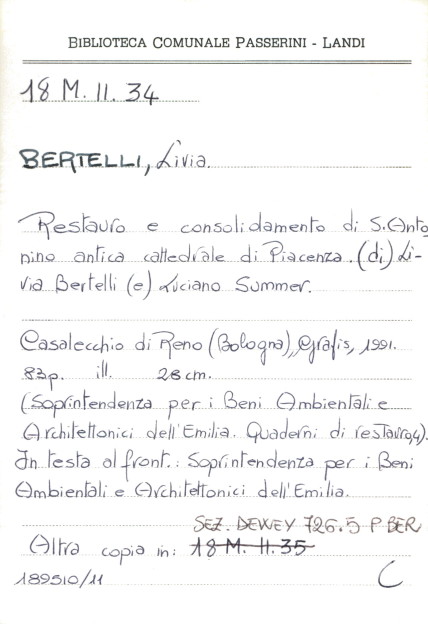 BIBLIOTECA COMUNALE PASSERINI - LANDI
18 M. II. 34
BERTELLI, Livia.
Restauro e consolidamento di S. Anto
nino antica cattedrale di Piacenza. (di) Li-
via Bertelli (e) Luciano Summer.
Casalecchio di Reno (Bologna), Grafis, 1991.
83p. ill. 28 cm.
(Soprintendenza per i Beni Ambientali e
Architettonici dell'Emilia. Quaderni di restauro, 4).
In testa al front.: Soprintendenza per i Beni
Ambientali e Architettonici dell'Emilia.
SEZ. DEWEY 726.5 P BER
Altra copia in: 18 M. II. 35
189510/11 C